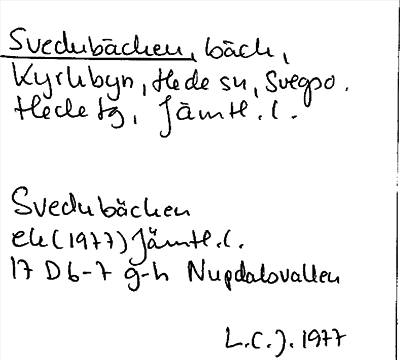 Svedubäcken, bäck,
Kyrkbyn, Hede sn, Svegpo.
Hede tg, Jämtl. l.
Svedubäcken
ek (1977) Jämtl. l.
17 D 6-7 g-h Nupdalsvallen
L.C.J. 1977